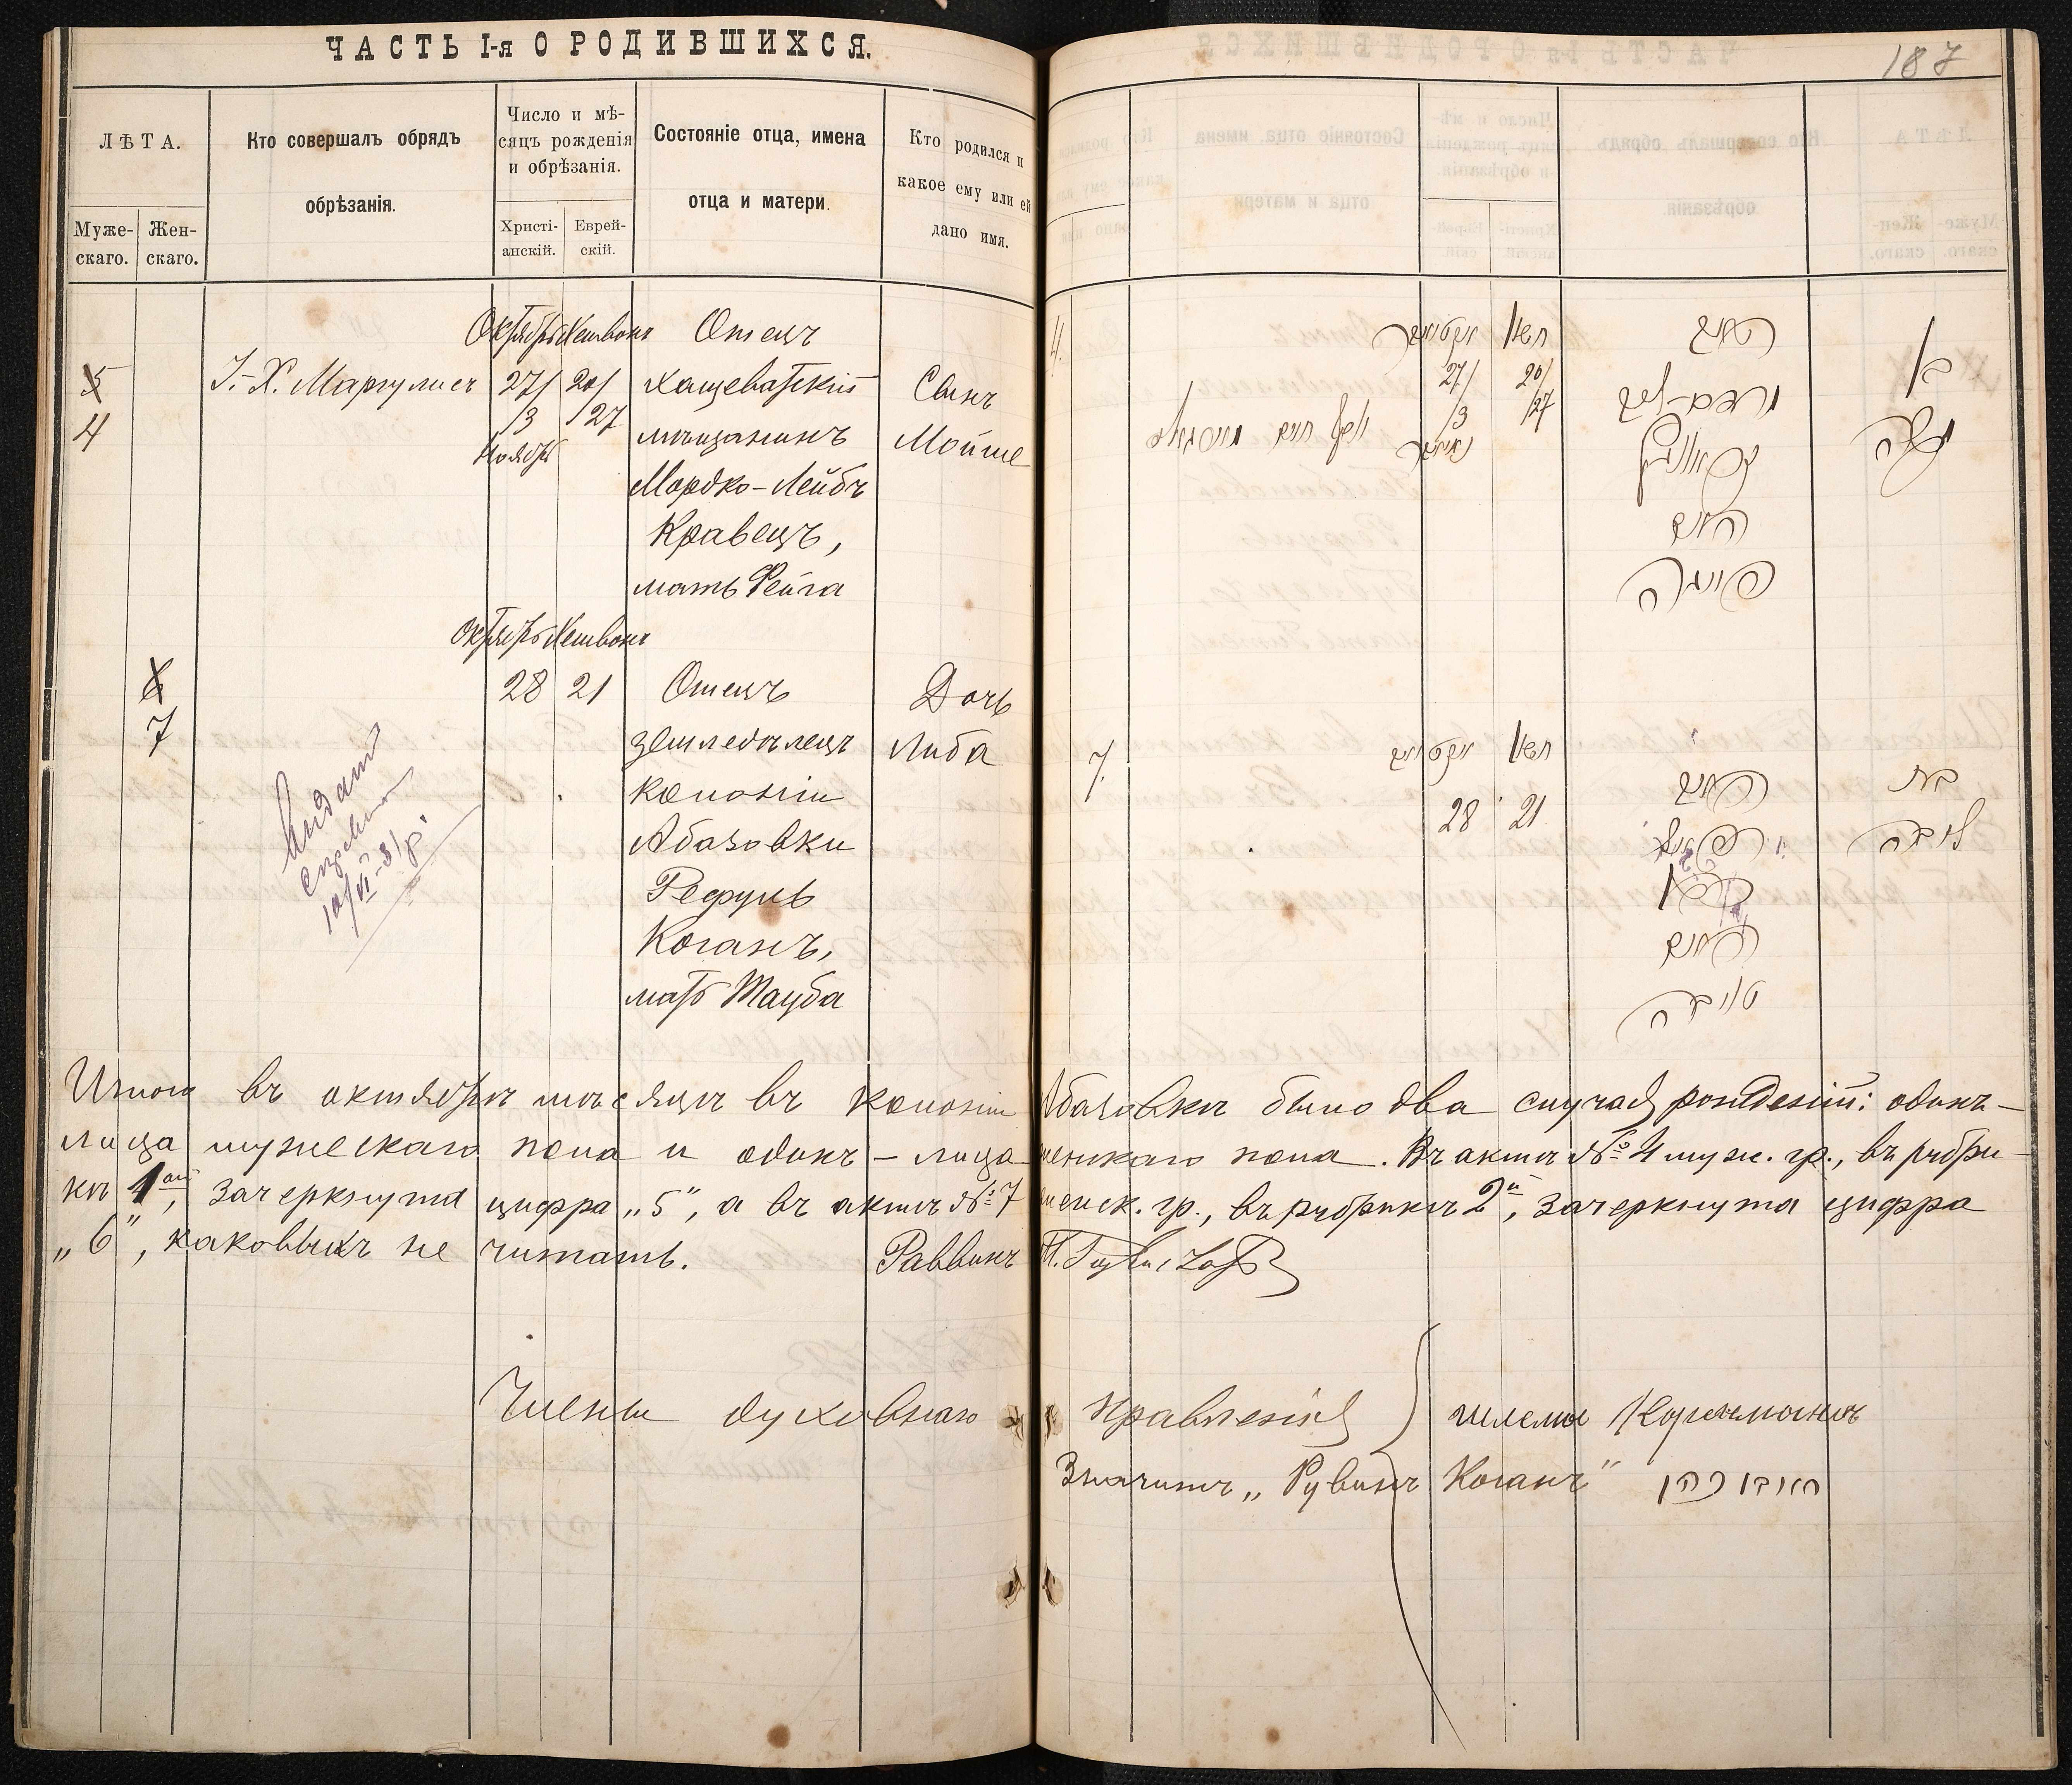 ЧАСТЬ I-я О РОДИВШИХСЯ.
187
ЛѢТА.
Муже-
скаго.
Жен-
скаго.
Кто совершалъ обрядъ
обрѣзанія.
Число и мѣ-
сяцъ рожденія
и обрѣзанія.
Христі-
анскій.
Еврей-
скій.
Состояніе отца, имена
отца и матери.
Кто родился и
какое ему или ей
дано имя.
5
4
І.-Х. Маргулисъ
Октябрь Хешвонъ
27/ 20/
/3 /27
Ноябрь
Отецъ
Хащеватскій
мѣщанинъ
Мордко-Лейбъ
Кравецъ,
мать Фейга
Сынъ
Мойше
4.
אקטאבר חשון
27/ 20/
/3 /27
בן
משה
6
7
Октябрь Хешвонъ
28 21
Отецъ
земледѣлецъ
колоніи
Абазовки
Рефуль
Коганъ,
мать Тауба
Дочь
Либа
7.
חשון
28 21
בת
ליבה
טויבה
Итого въ октябрѣ мѣсяцѣ въ колоніи Абазовкѣ было два случая рожденій: одинъ-
лица мужескаго пола и одинъ - лица женскаго пола. Въ актѣ № 4 муж. гр., въ рубри-
кѣ 1ой, зачеркнута цифра „5", а въ актѣ № 7 женск. гр., въ рубрикѣ 2й, зачеркнута цифра
„6", каковыхъ не читать. Раввинъ
Члены духовнаго Правленія Шлема
Значитъ „Рувинъ Коганъ" ראובן כהן